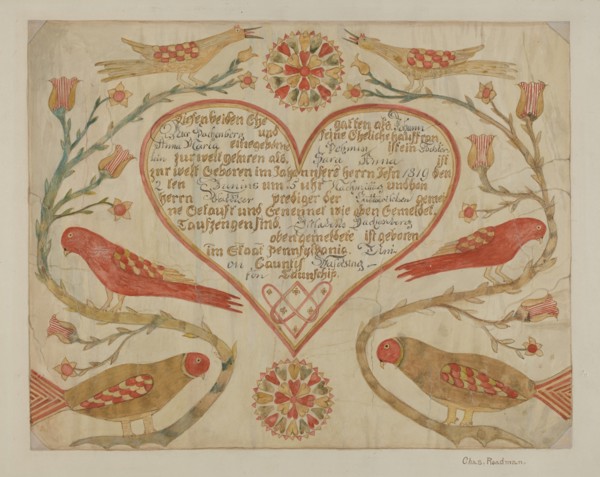 Diesen beiden Ehe gatten als Johann
Peter Dachenberg und seine Eheliche hauffrau
Anna Maria eine geborne ist ein Tochter
lein zur welt geboren als, Sara Anna ist
zur welt Geboren im Jahr unsers Herrn Jesu 1819 den
2 ten Junius um 5 uhr Nachmittag und von
Herrn prediger der Lutherischen gemei
ne Getauft und Genennet wie oben Gemeldet.
Taufzeugen sind, Elisabeth Dachenberg
oben gemeldete ist geboren
im Staat Pennsylvania
on Caunti
ton Taunschip.
Chas. Readman.